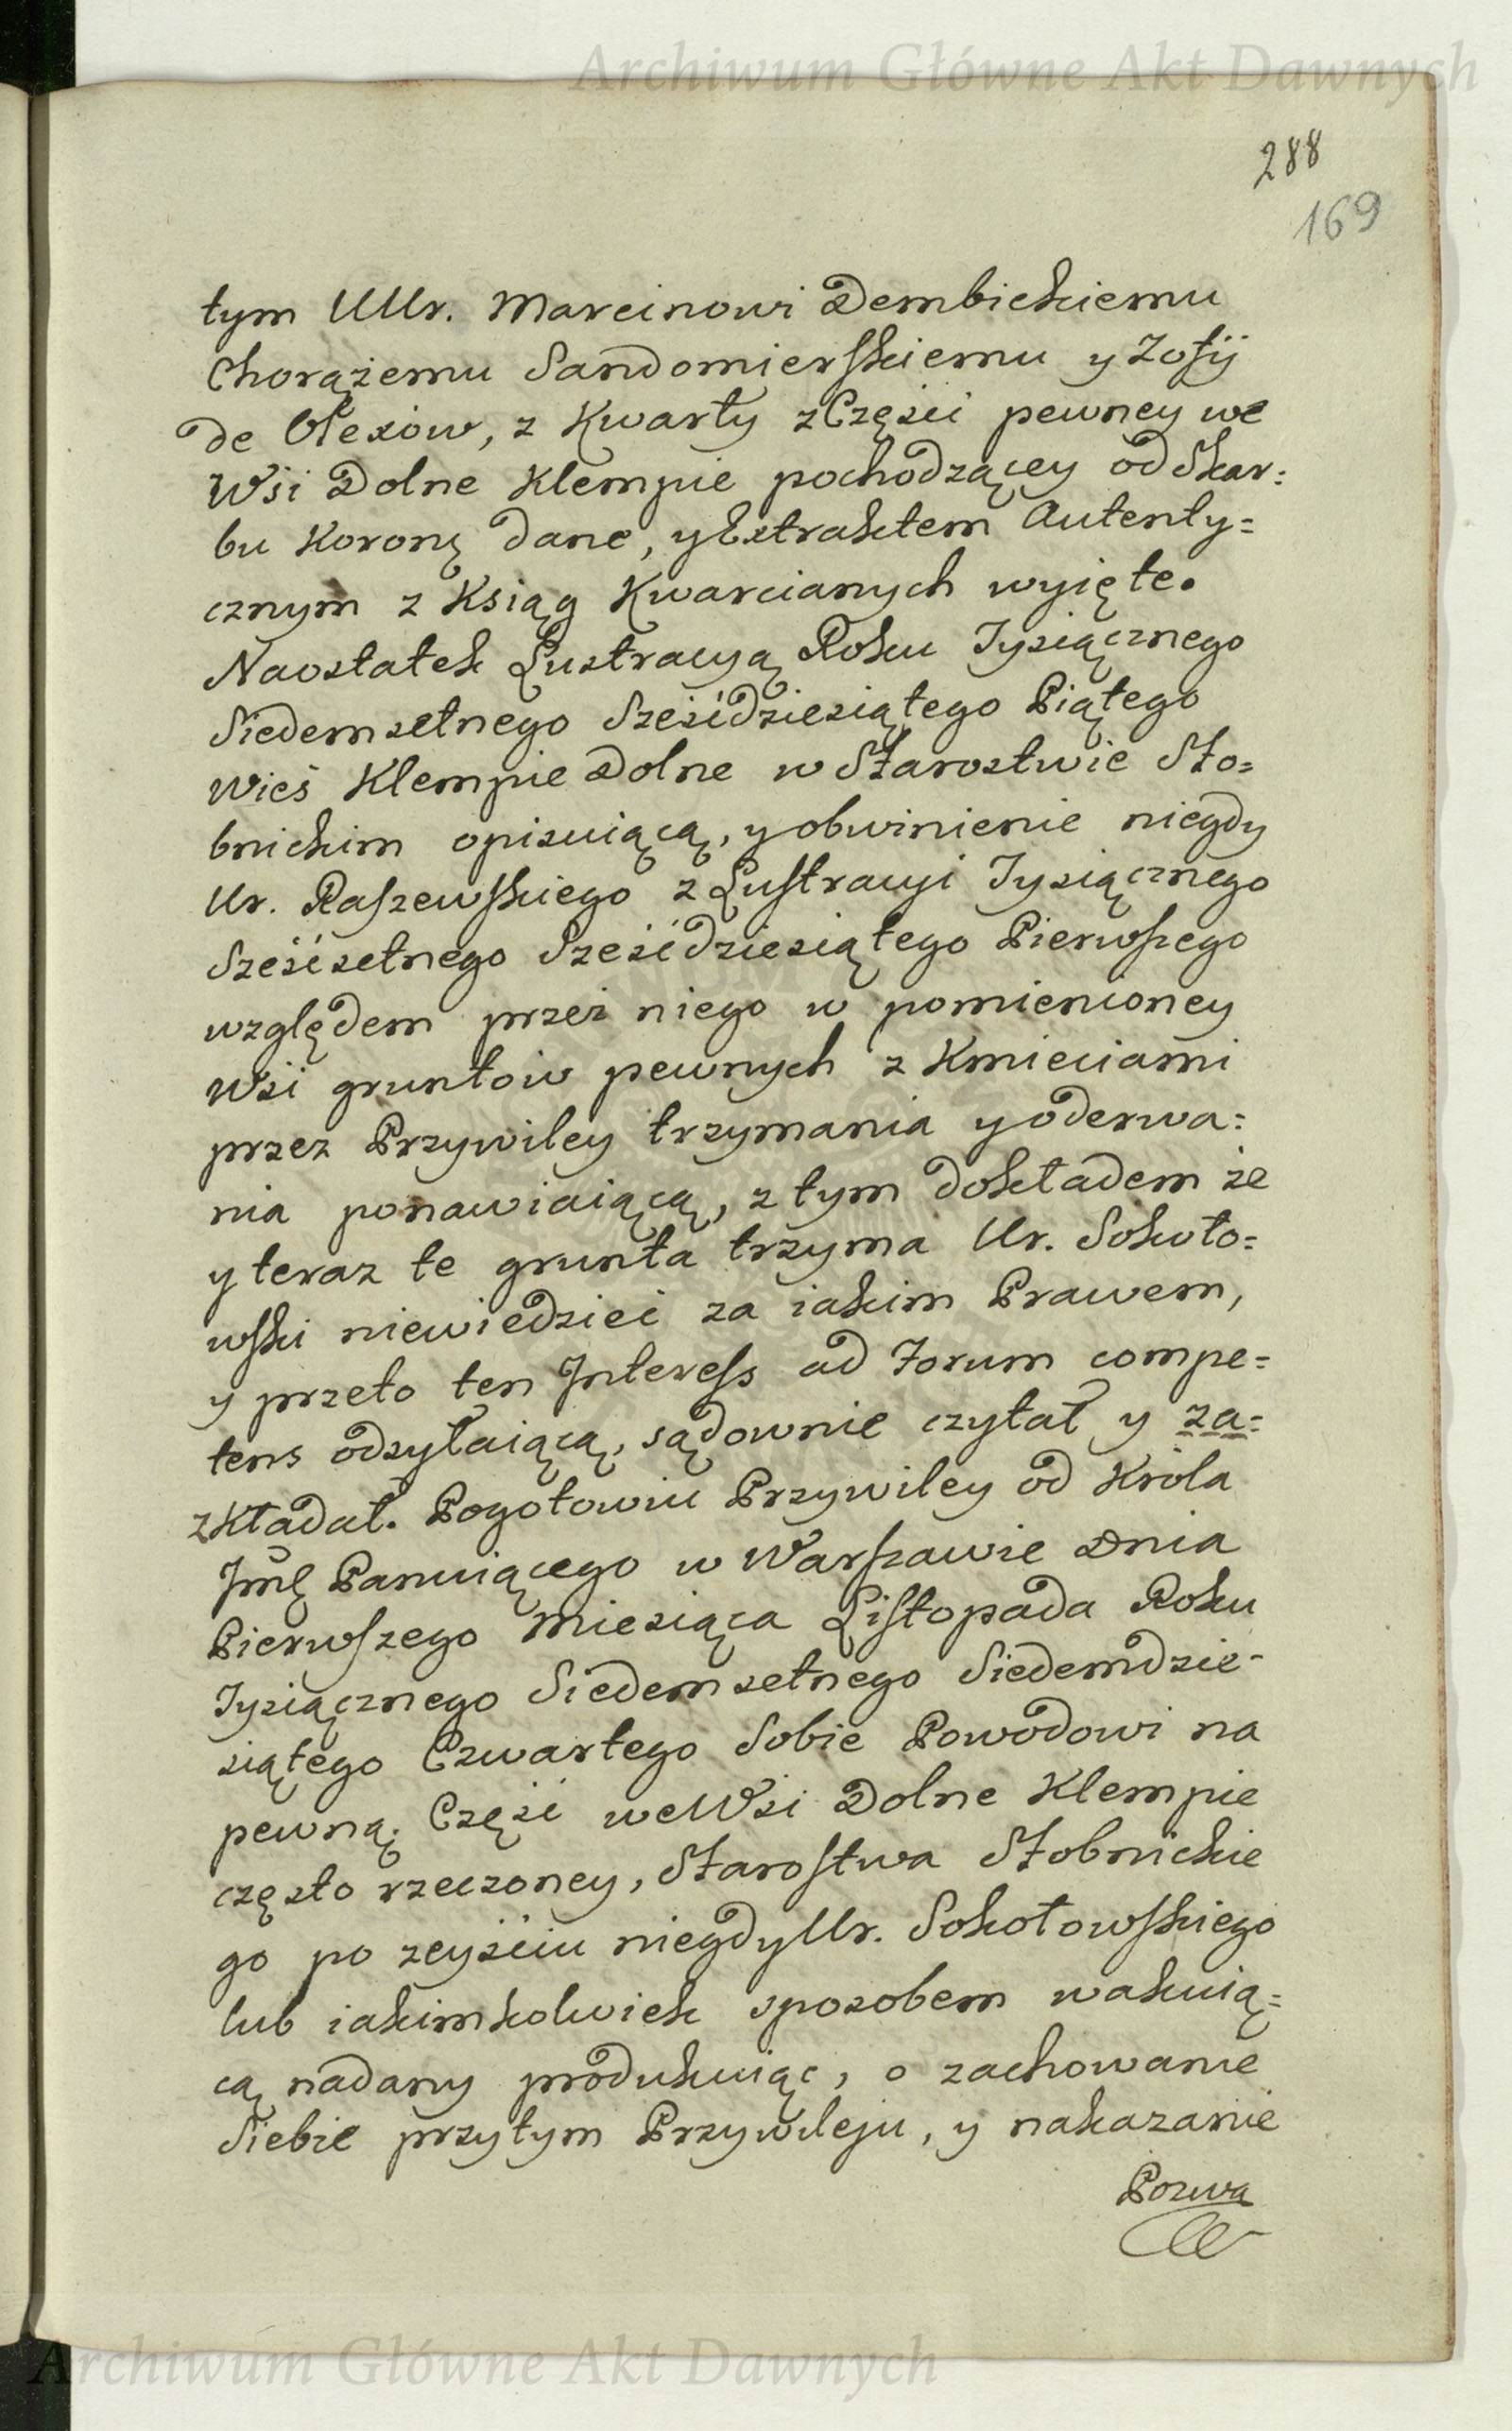 Archiwum Główne Akt Dawnych
288
169
tym UUr. Marcinowi Dembickiemu
Chorążemu Sandomierskiemu y Zofij
de Olexow, z Kwarty z Części pewney we
Wsi Dolne Klempie pochodzącey od Skar=
bu Koronę dane, y Extraktem Autenty=
cznym z Ksiąg Kwarcianych wyięte.
Naostatek Lustracyą Roku Tysiącznego
Siedemsetnego Sześćdziesiątego Piątego
Wieś Klempie Dolne w Starostwie Sto=
bnickim opisuiącą, y obwinienie niegdy
Ur. Raszewskiego z Lustracyi Tysiącznego
Sześćsetnego Sześćdziesiątego Pierwszego
względem przez niego w pomienioney
Wsi gruntów pewnych z Kmieciami
przez Przywiley trzymania y oderwa=
nia ponawiaiącą, z tym dokładem że
y teraz te grunta trzyma Ur. Sokoło=
wski niewiedzieć za iakim Prawem,
y przeto ten Interess ad Forum compe=
tens odsyłaiącą, sądownie czytał y za=
zkładał. Pogotowiu Przywiley od Króla
Jmę Panuiącego w Warszawie Dnia
Pierwszego Miesiąca Listopada Roku
Tysiącznego Siedemsetnego Siedemdzie-
siątego Czwartego Sobie Powodowi na
pewną Część we Wsi Dolne Klempie
często rzeczoney, Starostwa Stobnickie
go po zeyściu niegdy Ur. Sokołowskiego
lub iakimkolwiek sposobem wakuią=
cą nadany produkuiąc, o zachowanie
Siebie przytym Przywileju, y nakazanie
Pozwą
Archiwum Główne Akt Dawnych